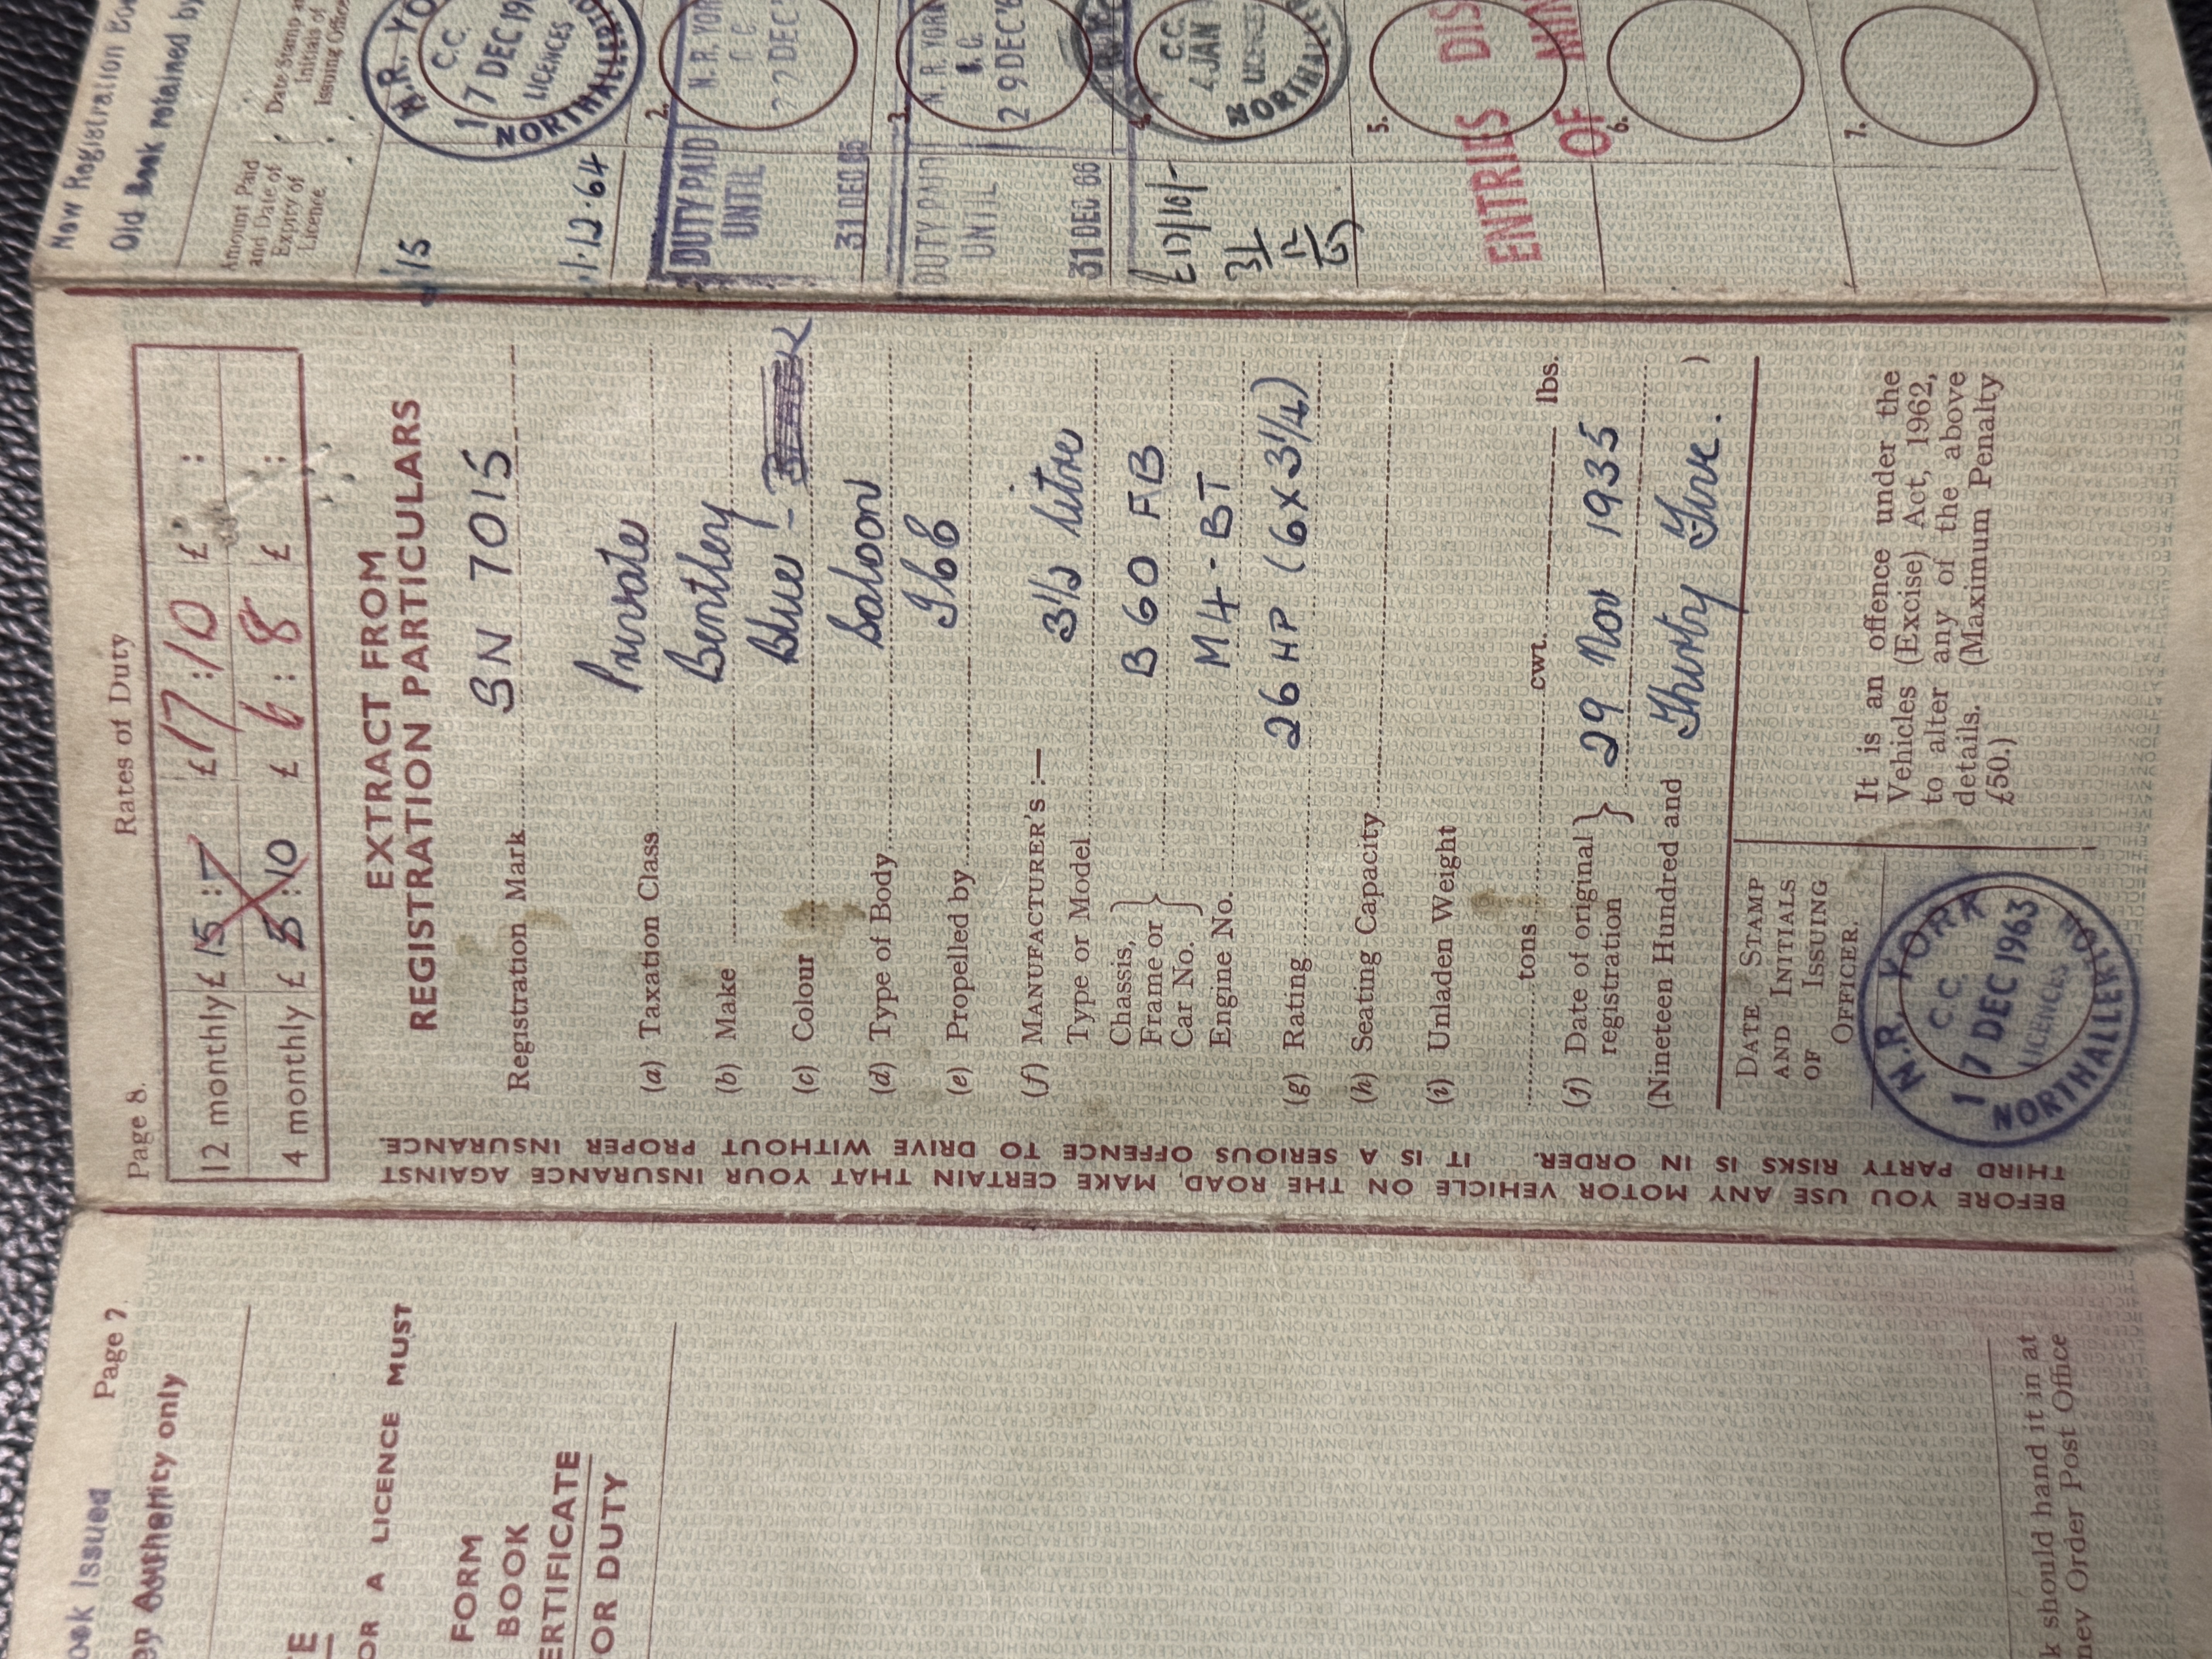 Page 8.
Rates of Duty
12 monthly £ 15 : - £ 17 : 10 £ :
4 monthly £ 5 : 10 £ 6 : 8 £ :
EXTRACT FROM
REGISTRATION PARTICULARS
Registration Mark SN 7015
(a) Taxation Class Private
(b) Make Bentley
(c) Colour Blue -
(d) Type of Body Saloon
(e) Propelled by
(f) MANUFACTURER'S :—
Type or Model 3½ litre
Chassis,
Frame or
Car No. B 60 FB
Engine No. M4 - BT
(g) Rating 26 HP (6 X 3¼)
(h) Seating Capacity
(i) Unladen Weight
tons cwt. lbs.
(j) Date of original
registration 29 Nov 1935
(Nineteen Hundred and Thirty Five. )
DATE STAMP
AND INITIALS
OF ISSUING
OFFICER.
N.R. YORK
C.C.
17 DEC 1963
LICENCES
NORTHALLERTON
It is an offence under the
Vehicles (Excise) Act, 1962,
to alter any of the above
details. (Maximum Penalty
£50.)
BEFORE YOU USE ANY MOTOR VEHICLE ON THE ROAD, MAKE CERTAIN THAT YOUR INSURANCE AGAINST
THIRD PARTY RISKS IS IN ORDER. IT IS A SERIOUS OFFENCE TO DRIVE WITHOUT PROPER INSURANCE.
Page 7
Issued
only
OR A LICENCE MUST
FORM
BOOK
ERTIFICATE
OR DUTY
should hand it in at
Order Post Office
New Registration
Old Book retained by
Amount Paid
and Date of
Expiry of
Licence.
Date Stamp
Initials of
Issuing
15
12.64
N.R. YO
C.C.
17 DEC 19
LICENCES
NORTHALLERTO
2.
DUTY PAID
UNTIL
31 DEC 65
N. R. YOR
C. C.
22 DEC
3.
DUTY PAID
UNTIL
31 DEC 66
N. R. YORK
C.
29 DEC
£17/10/-
31
12
67
C.C.
4 JAN
LICENCES
NORTHALLE
5.
ENTRIES DIS
OF MIN
6.
7.